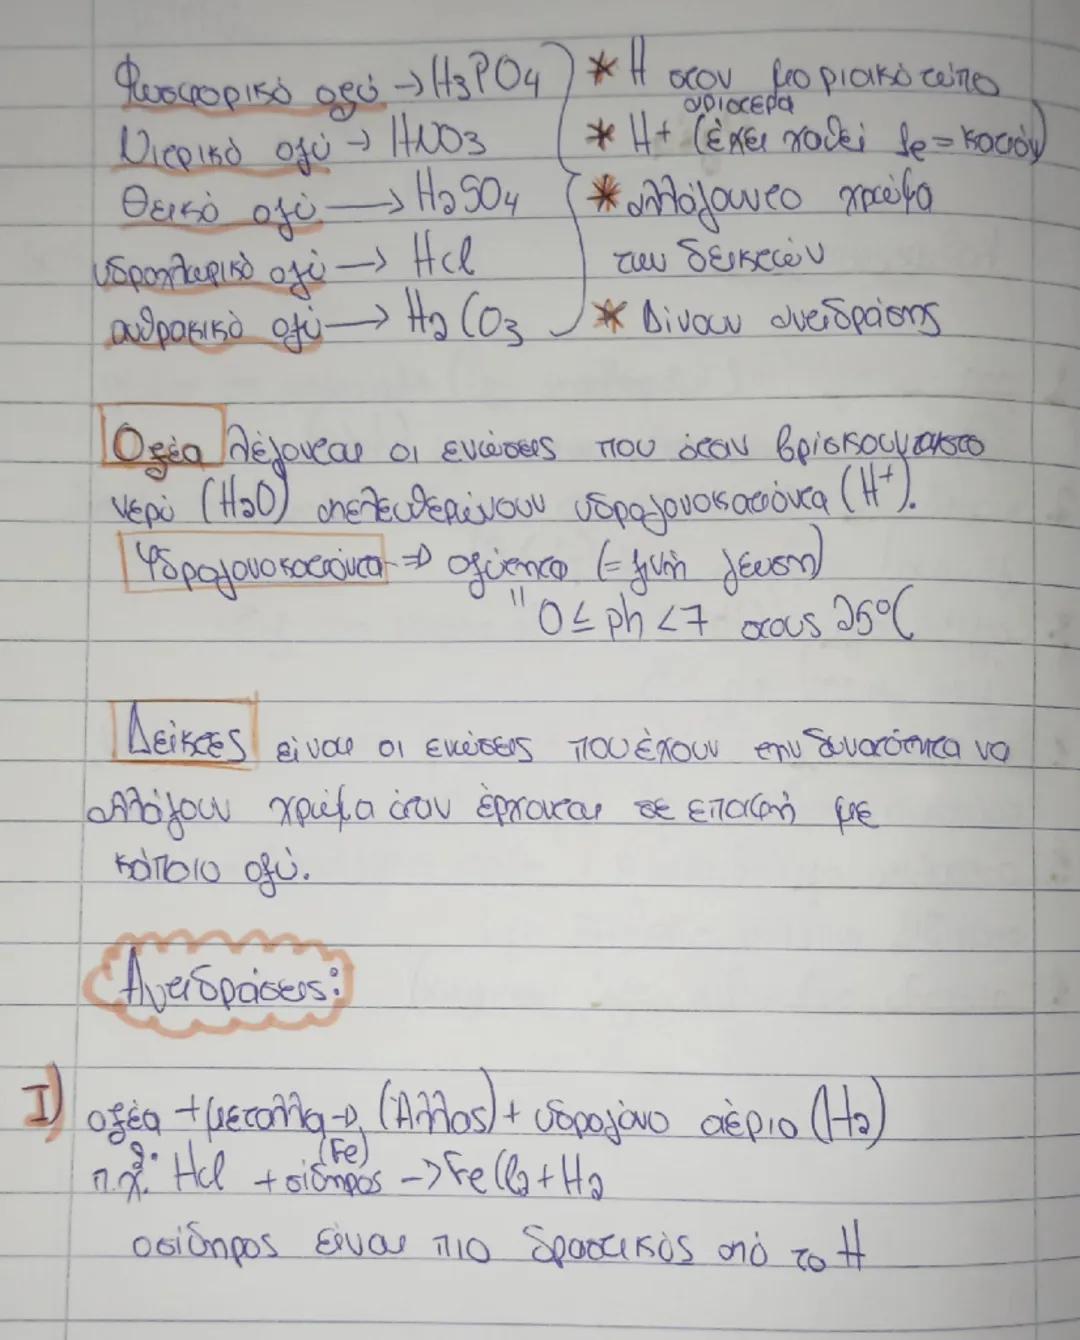 Φωσφορικό οξύ → H3PO4 * H στον μοριακό τύπο
αριστερά
Νιτρικό οξύ → HNO3 * H+ (έχει χαθεί 1e = κατιόν)
Θειικό οξύ → H2SO4 * αλλάζουν το χρώμα
υδροχλωρικό οξύ → Hcl των δεικτών
ανθρακικό οξύ → H2CO3 * Δίνουν αντιδράσης
Οξέα λέγονται οι ενώσεις που όταν βρίσκονται στο
νερό (H2O) απελευθερώνουν υδρογονοκατιόντα (H+).
Υδρογονοκατιόντα ⇒ οξύτητα (= ξινή γεύση)
" 0 ≤ ph < 7 στους 25°C
Δείκτες είναι οι ενώσεις που έχουν την δυνατότητα να
αλλάζουν χρώμα όταν έρχονται σε επαφή με
κάποιο οξύ.
Αντιδράσεις:
I) οξέα + μέταλλα → (Άλλας) + υδρογόνο αέριο (H2)
(Fe)
π.χ. Hcl + σίδηρος → FeCl2 + H2
ο σίδηρος είναι πιο δραστικός από το H